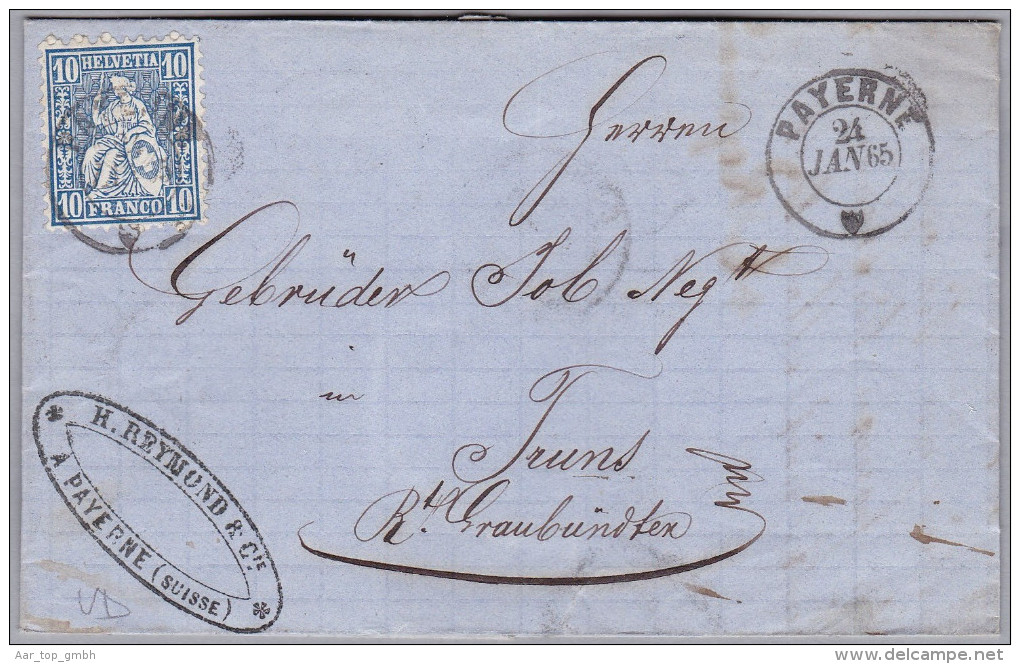 10 HELVETIA 10
10 FRANCO 10
PAYERNE
24
JAN 65
Herren
Gebrüder Job Negtt
in
Truns
Kt. Graubündten
H. REYMOND & CIE
À PAYERNE (SUISSE)
VD
Aar_top_gmbh
www.delcampe.net